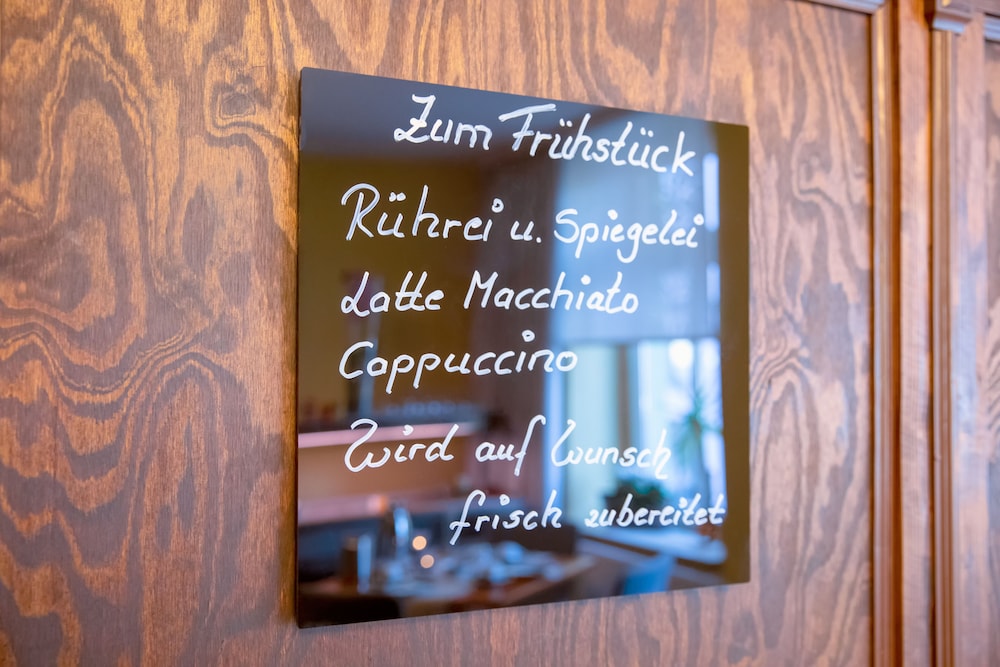 Zum Frühstück
Rührei u. Spiegelei
Latte Macchiato
Cappuccino
Wird auf Wunsch
frisch zubereitet